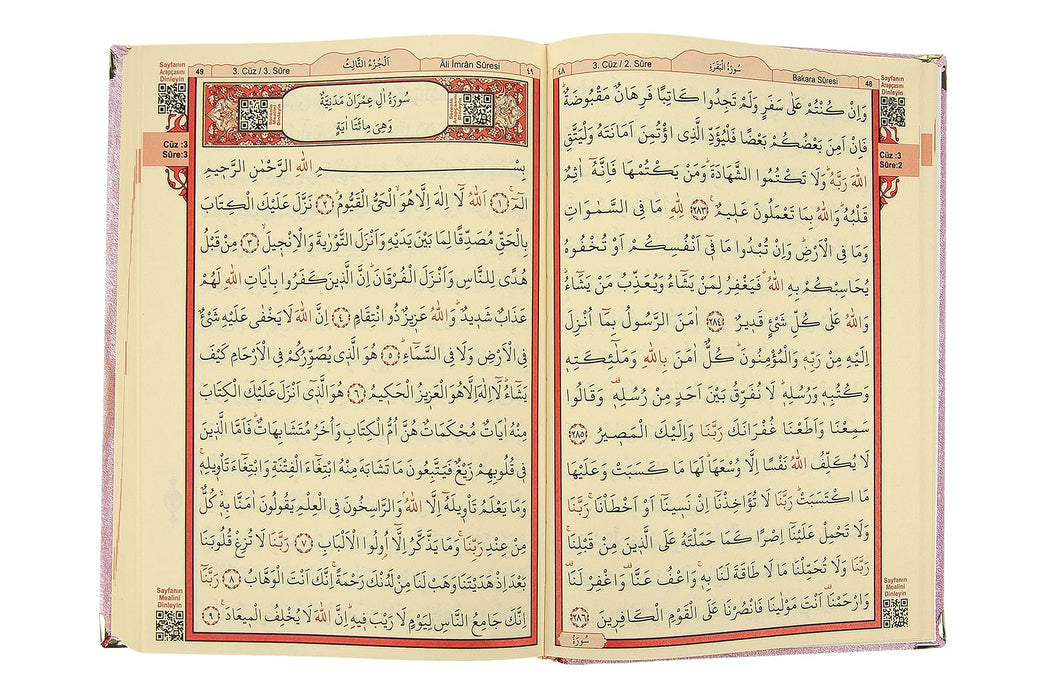 Sayfanın
Arapçasını
Dinleyin
48
Bakara Sûresi
سُورَةُ الْبَقَرَةِ
3. Cüz / 2. Sûre
٤٨
Cüz :3
Sûre:2
وَاِنْ كُنْتُمْ عَلٰى سَفَرٍ وَلَمْ تَجِدُوا كَاتِبًا فَرِهَانٌ مَقْبُوضَةٌۜ
فَاِنْ اَمِنَ بَعْضُكُمْ بَعْضًا فَلْيُؤَدِّ الَّذِي اؤْتُمِنَ اَمَانَتَهُ وَلْيَتَّقِ
اللّٰهَ رَبَّهُۜ وَلَا تَكْتُمُوا الشَّهَادَةَۜ وَمَنْ يَكْتُمْهَا فَاِنَّهُٓ اٰثِمٌ
قَلْبُهُۜ وَاللّٰهُ بِمَا تَعْمَلُونَ عَلِيمٌ۟ ﴿٢٨٣﴾ لِلّٰهِ مَا فِي السَّمٰوَاتِ
وَمَا فِي الْاَرْضِۜ وَاِنْ تُبْدُوا مَا فِٓي اَنْفُسِكُمْ اَوْ تُخْفُوهُ
يُحَاسِبْكُمْ بِهِ اللّٰهُۜ فَيَغْفِرُ لِمَنْ يَشَٓاءُ وَيُعَذِّبُ مَنْ يَشَٓاءُۜ
وَاللّٰهُ عَلٰى كُلِّ شَيْءٍ قَدِيرٌ ﴿٢٨٤﴾ اٰمَنَ الرَّسُولُ بِمَٓا اُنْزِلَ
اِلَيْهِ مِنْ رَبِّهِ وَالْمُؤْمِنُونَۜ كُلٌّ اٰمَنَ بِاللّٰهِ وَمَلٰٓئِكَتِهِ
وَكُتُبِهِ وَرُسُلِهِۜ لَا نُفَرِّقُ بَيْنَ اَحَدٍ مِنْ رُسُلِهِ۠ وَقَالُوا
سَمِعْنَا وَاَطَعْنَا غُفْرَانَكَ رَبَّنَا وَاِلَيْكَ الْمَصِيرُ ﴿٢٨٥﴾
لَا يُكَلِّفُ اللّٰهُ نَفْسًا اِلَّا وُسْعَهَاۜ لَهَا مَا كَسَبَتْ وَعَلَيْهَا
مَا اكْتَسَبَتْۜ رَبَّنَا لَا تُؤَاخِذْنَٓا اِنْ نَسِينَٓا اَوْ اَخْطَأْنَاۚ رَبَّنَا
وَلَا تَحْمِلْ عَلَيْنَٓا اِصْرًا كَمَا حَمَلْتَهُ عَلَى الَّذِينَ مِنْ قَبْلِنَاۚ
رَبَّنَا وَلَا تُحَمِّلْنَا مَا لَا طَاقَةَ لَنَا بِهِۚ وَاعْفُ عَنَّا۠ وَاغْفِرْ لَنَا۠
وَارْحَمْنَا۠ اَنْتَ مَوْلٰينَا فَانْصُرْنَا عَلَى الْقَوْمِ الْكَافِرِينَ ﴿٢٨٦﴾
سُورَةُ
Sayfanın
Mealini
Dinleyin
٤٩
Âli İmrân Sûresi
اَلْجُزْءُ الثَّالِثُ
3. Cüz / 3. Sûre
49
Sayfanın
Arapçasını
Dinleyin
Cüz :3
Sûre:3
سُورَةُ اٰلِ عِمْرَانَ مَدَنِيَّةٌ
وَهِيَ مِائَتَا اٰيَةٍ
بِسْمِ اللّٰهِ الرَّحْمٰنِ الرَّحِيمِ
الٓمٓۚ ﴿١﴾ اَللّٰهُ لَٓا اِلٰهَ اِلَّا هُوَۙ الْحَيُّ الْقَيُّومُۜ ﴿٢﴾ نَزَّلَ عَلَيْكَ الْكِتَابَ
بِالْحَقِّ مُصَدِّقًا لِمَا بَيْنَ يَدَيْهِ وَاَنْزَلَ التَّوْرٰيةَ وَالْاِنْجِيلَۙ ﴿٣﴾ مِنْ قَبْلُ
هُدًى لِلنَّاسِ وَاَنْزَلَ الْفُرْقَانَۜ اِنَّ الَّذِينَ كَفَرُوا بِاٰيَاتِ اللّٰهِ لَهُمْ
عَذَابٌ شَدِيدٌۜ وَاللّٰهُ عَزِيزٌ ذُو انْتِقَامٍ ﴿٤﴾ اِنَّ اللّٰهَ لَا يَخْفٰى عَلَيْهِ شَيْءٌ
فِي الْاَرْضِ وَلَا فِي السَّمَٓاءِۜ ﴿٥﴾ هُوَ الَّذِي يُصَوِّرُكُمْ فِي الْاَرْحَامِ كَيْفَ
يَشَٓاءُۜ لَٓا اِلٰهَ اِلَّا هُوَ الْعَزِيزُ الْحَكِيمُ ﴿٦﴾ هُوَ الَّذِٓي اَنْزَلَ عَلَيْكَ الْكِتَابَ
مِنْهُ اٰيَاتٌ مُحْكَمَاتٌ هُنَّ اُمُّ الْكِتَابِ وَاُخَرُ مُتَشَابِهَاتٌۜ فَاَمَّا الَّذِينَ
فِي قُلُوبِهِمْ زَيْغٌ فَيَتَّبِعُونَ مَا تَشَابَهَ مِنْهُ ابْتِغَٓاءَ الْفِتْنَةِ وَابْتِغَٓاءَ تَأْوِيلِهِۚ
وَمَا يَعْلَمُ تَأْوِيلَهُٓ اِلَّا اللّٰهُۢ وَالرَّاسِخُونَ فِي الْعِلْمِ يَقُولُونَ اٰمَنَّا بِهِۙ كُلٌّ
مِنْ عِنْدِ رَبِّنَاۚ وَمَا يَذَّكَّرُ اِلَّٓا اُولُوا الْاَلْبَابِ ﴿٧﴾ رَبَّنَا لَا تُزِغْ قُلُوبَنَا
بَعْدَ اِذْ هَدَيْتَنَا وَهَبْ لَنَا مِنْ لَدُنْكَ رَحْمَةًۚ اِنَّكَ اَنْتَ الْوَهَّابُ ﴿٨﴾ رَبَّنَٓا
اِنَّكَ جَامِعُ النَّاسِ لِيَوْمٍ لَا رَيْبَ فِيهِۜ اِنَّ اللّٰهَ لَا يُخْلِفُ الْمِيعَادَ۟ ﴿٩﴾
Sayfanın
Mealini
Dinleyin